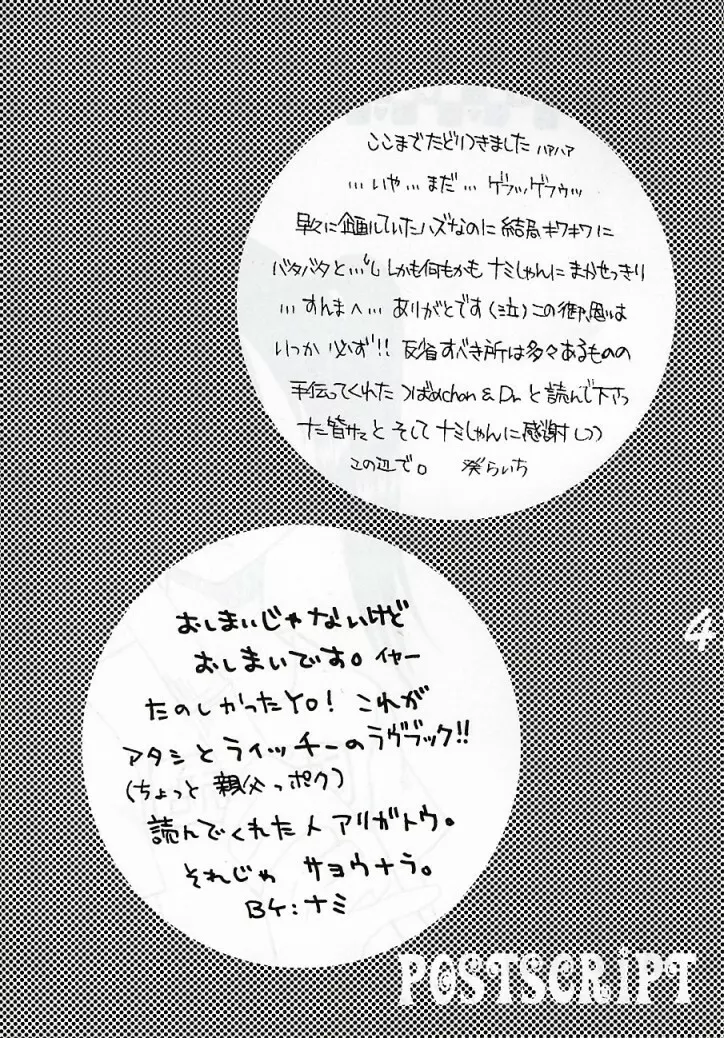 ここまでたどりつきました ハァハァ
…いや…まだ… ゲフッゲフゥッ
早々に企画していたハズなのに 結局キワキワに
バタバタと…。しかも何もかも ナミしゃんに まかせっきり
…すんまへ… ありがとです(泣)この御恩は
いつか 必ず!! 反省すべき所は多々あるものの
手伝ってくれた つばめchan & Dr. と 読んで下さっ
た皆サマと そして ナミしゃんに 感謝しつつ
この辺で。 葵らいち
おしまいじゃないけど
おしまいです。イヤー
たのしかったYO! これが
アタシとライッチーのラヴブック!!
(ちょっと 親父っポク)
読んでくれた人 アリガトウ。
それじゃ サヨウナラ。
BY:ナミ
4
POSTSCRIPT